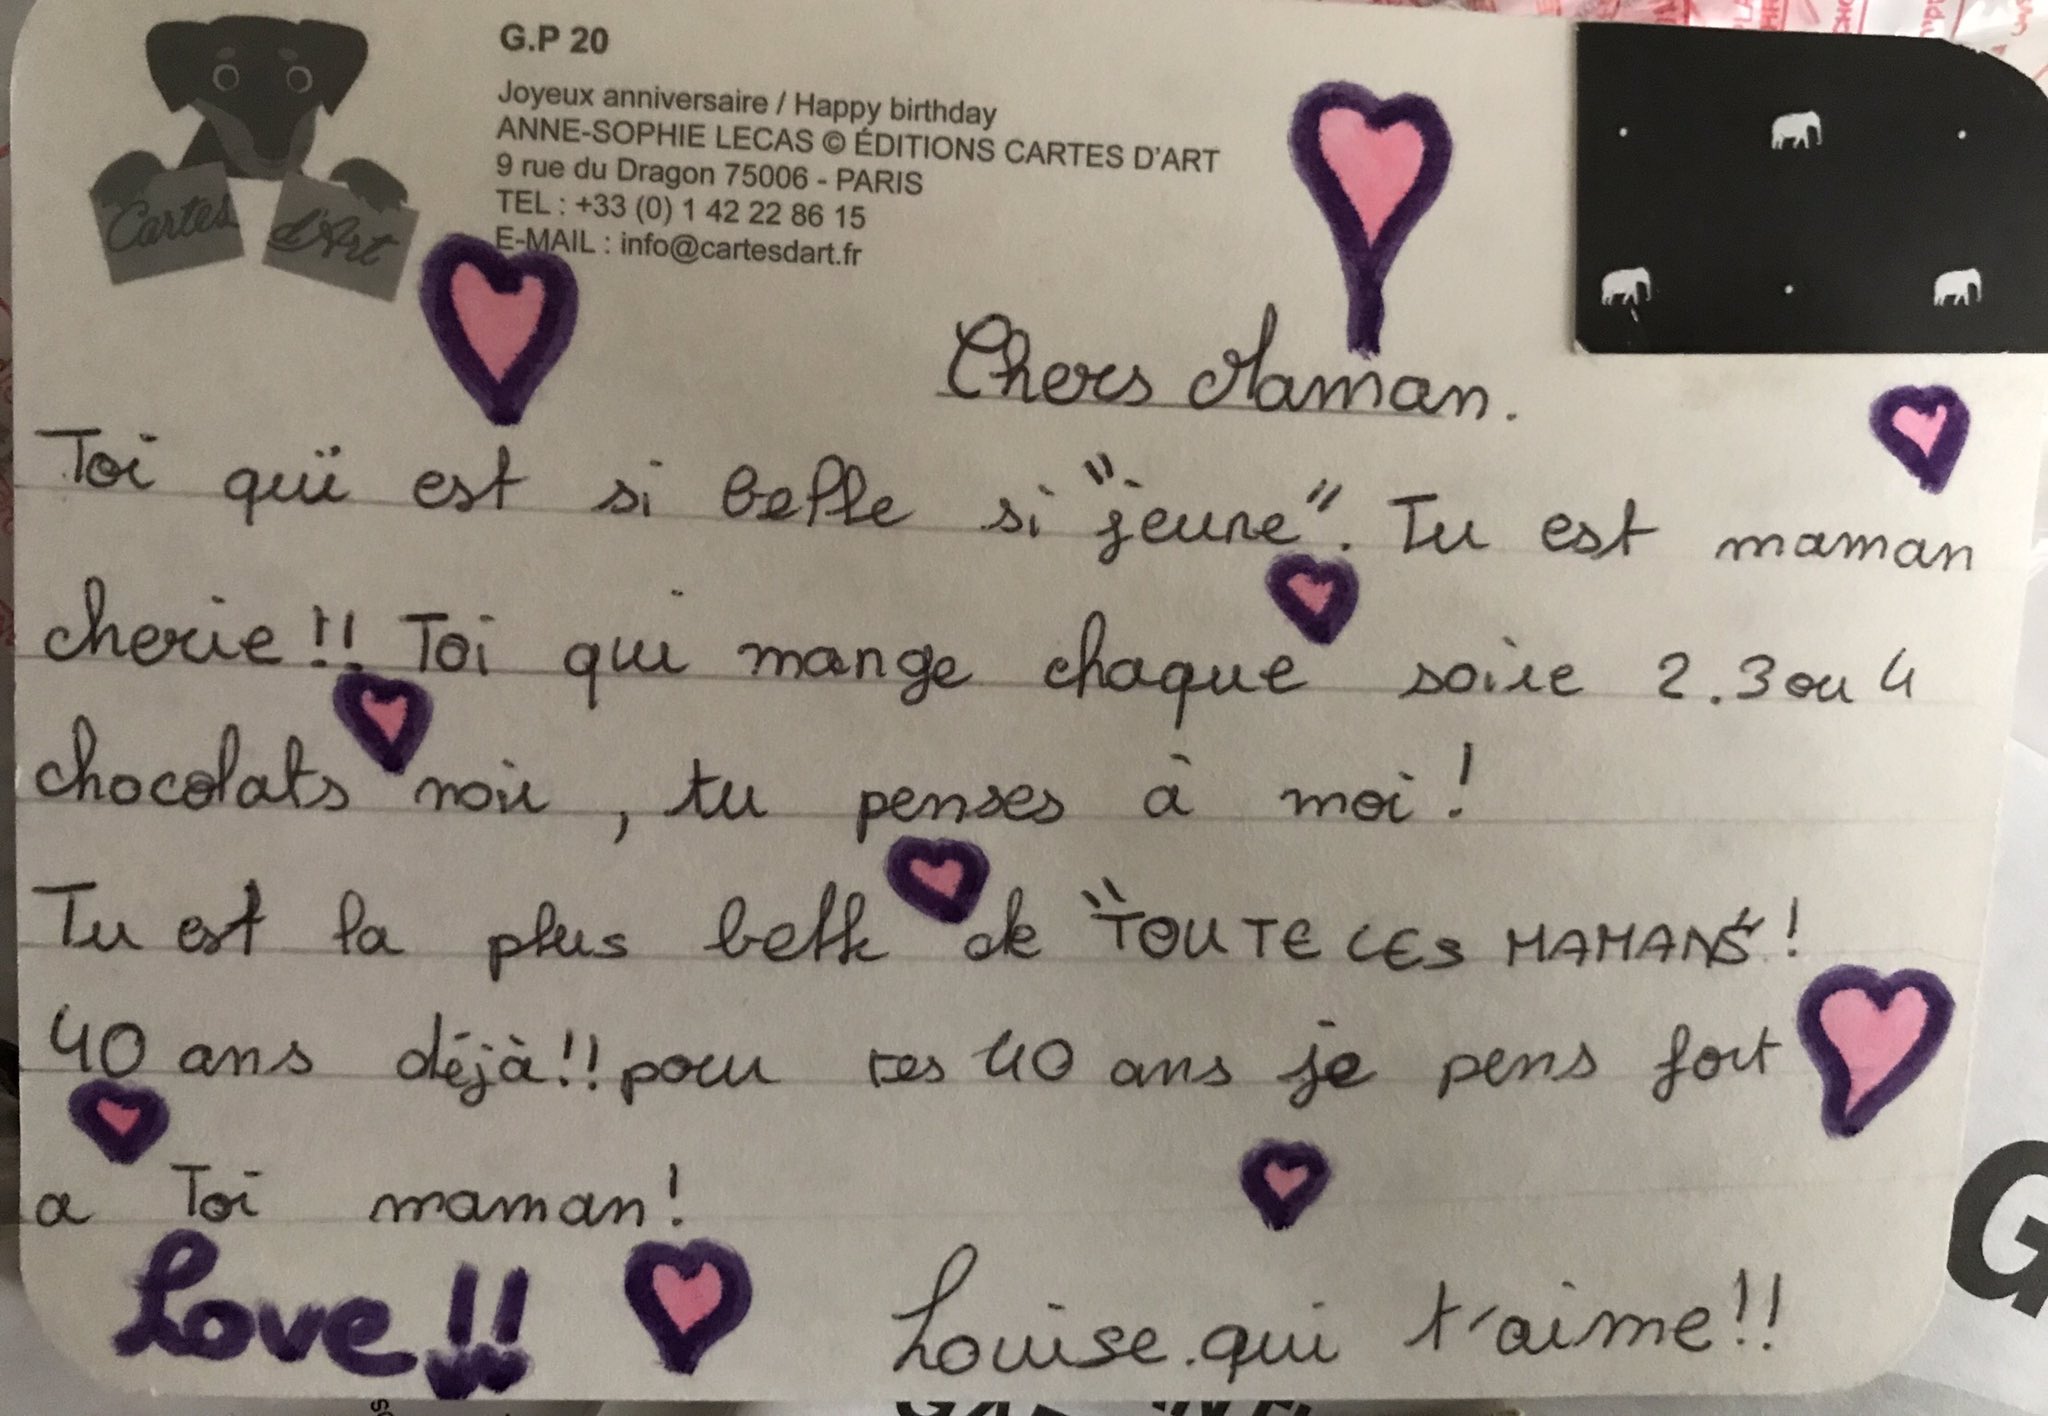 Cartes d'Art
G.P 20
Joyeux anniversaire / Happy birthday
ANNE-SOPHIE LECAS © ÉDITIONS CARTES D'ART
9 rue du Dragon 75006 - PARIS
TEL : +33 (0) 1 42 22 86 15
E-MAIL : info@cartesdart.fr
Chers Maman.
Toi qui est si belle si "jeune". Tu est maman
cherie!! Toi qui mange chaque soire 2.3 ou 4
chocolats noir, tu penses à moi!
Tu est la plus belle de "TOUTE LES MAMANS"!
40 ans déjà!! pour tes 40 ans je pens fort
a Toi maman!
Love!!
Louise.qui t'aime!!